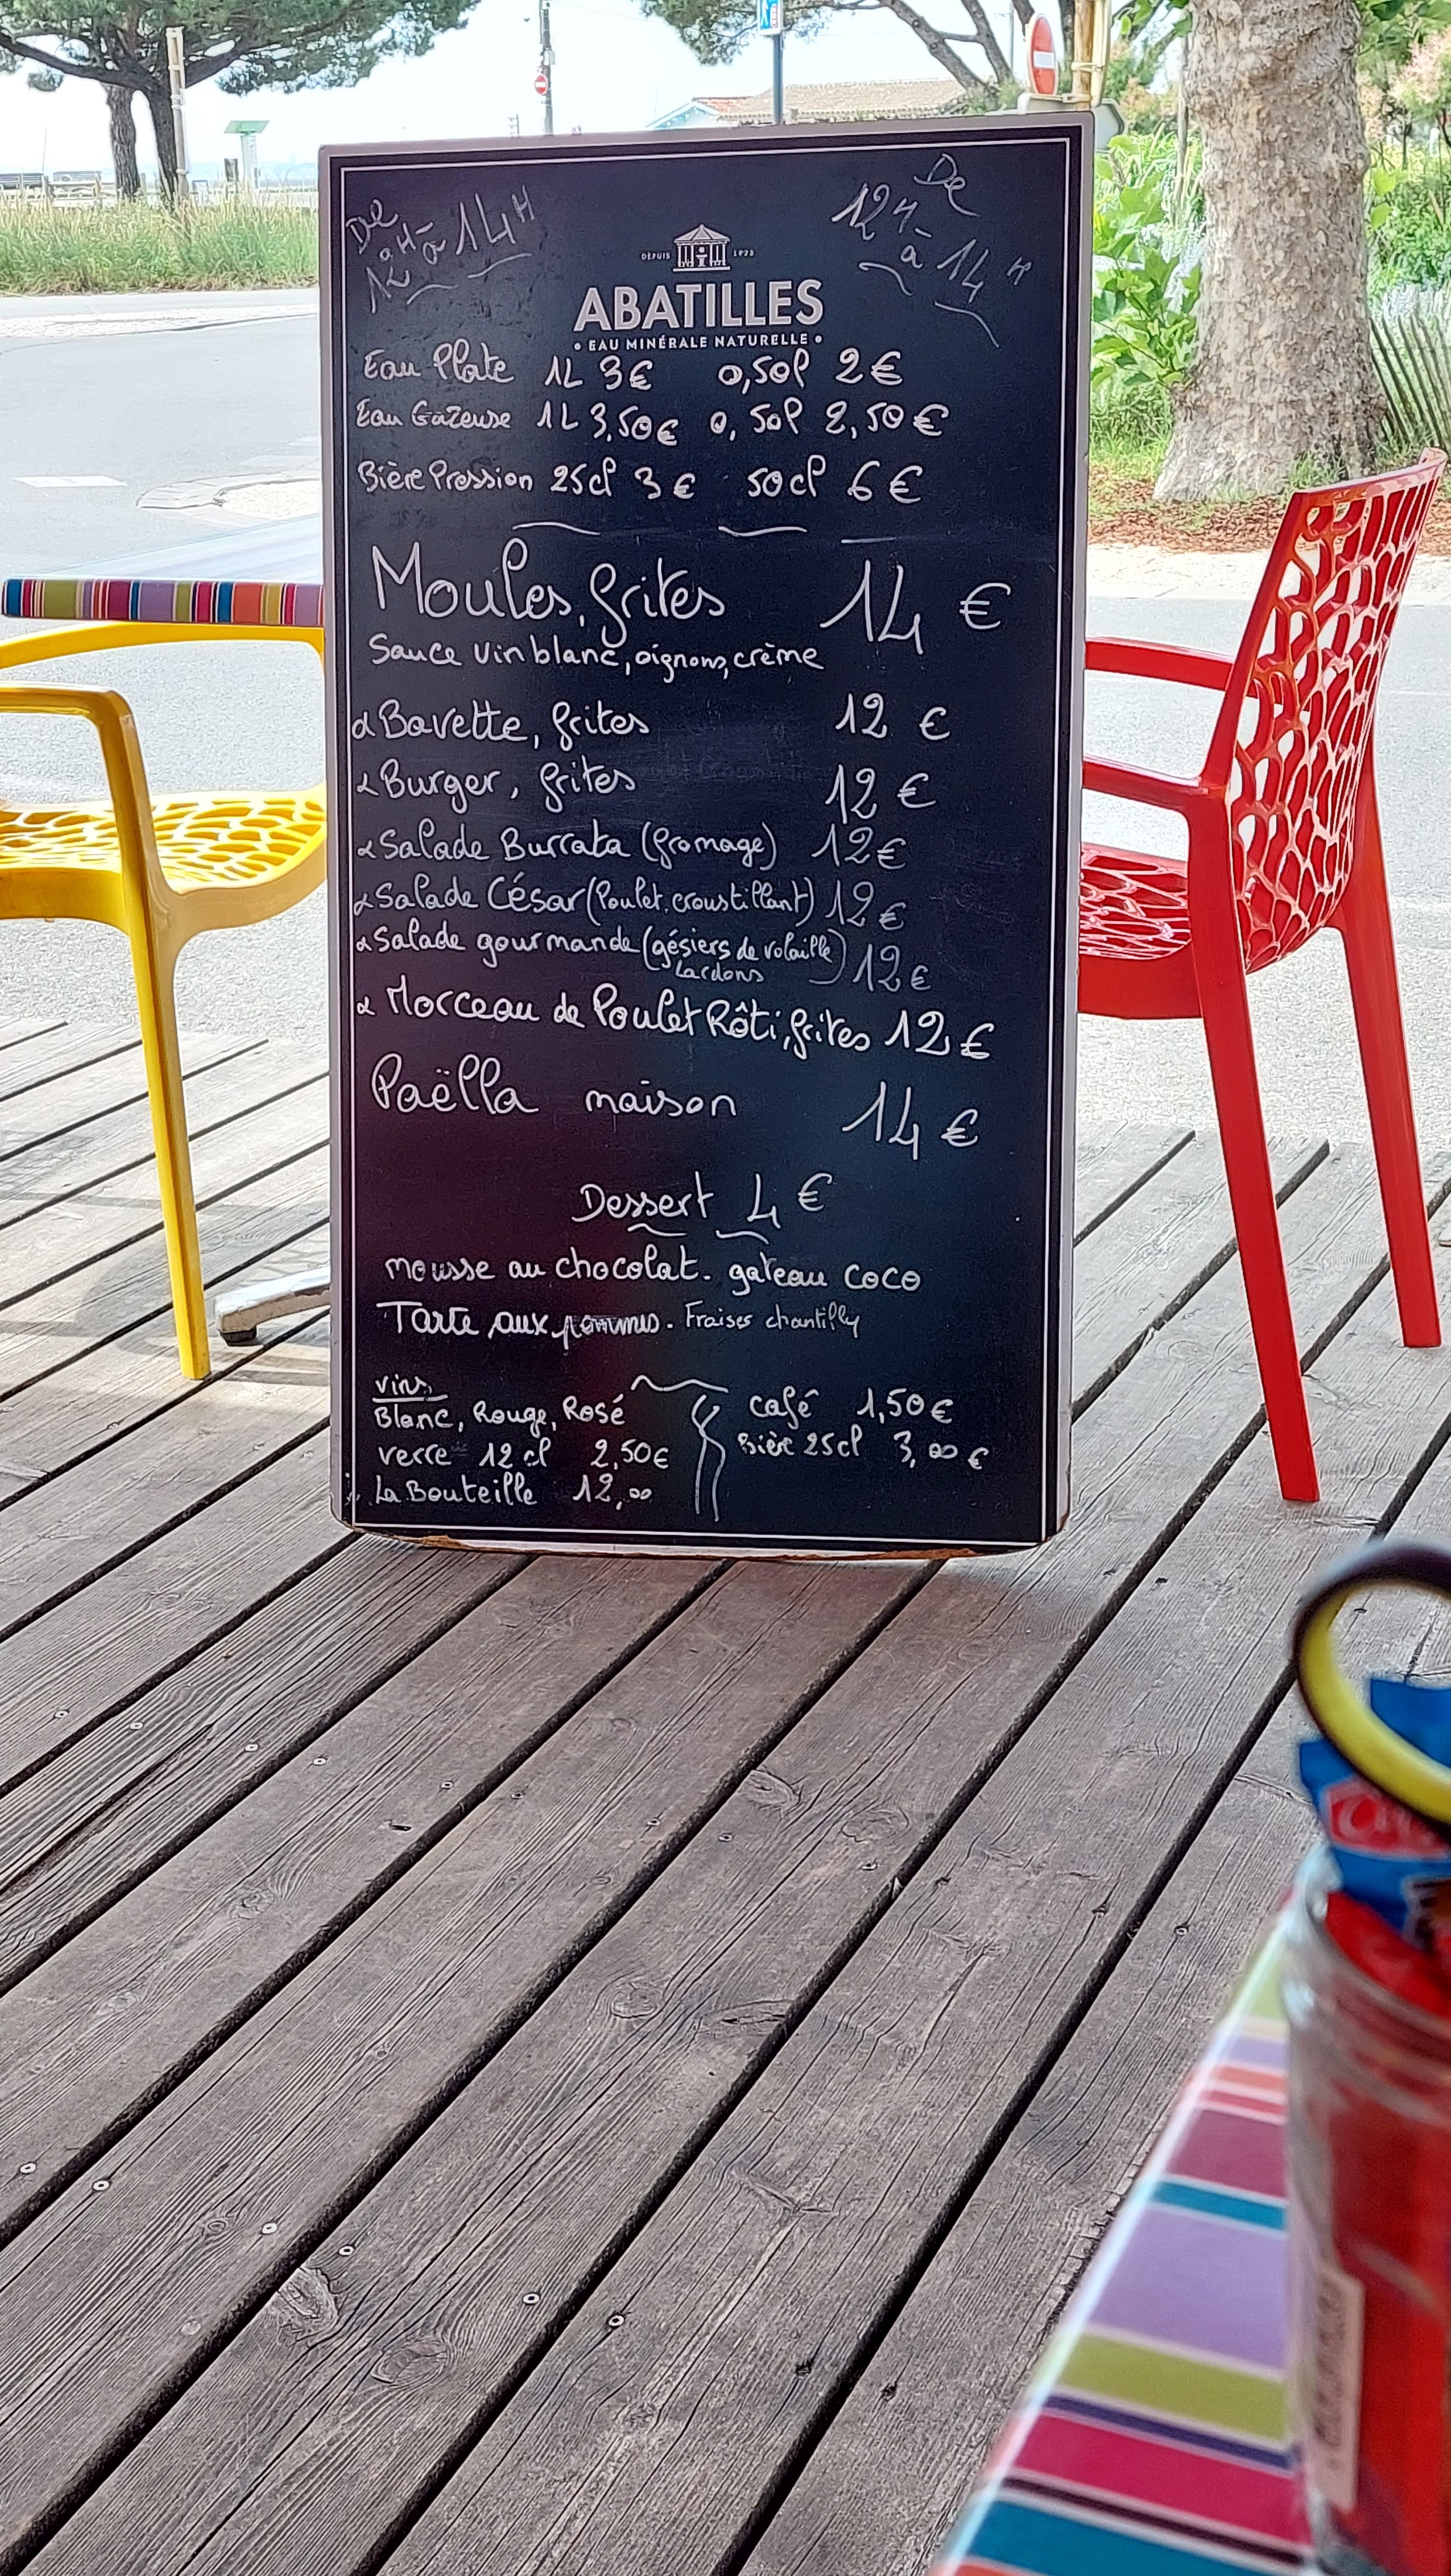 De
12H à 14H
De
12H à 14H
DEPUIS 1925
ABATILLES
• EAU MINÉRALE NATURELLE •
Eau Plate 1L 3€ 0,50l 2€
Eau Gazeuse 1L 3,50€ 0,50l 2,50€
Bière Pression 25cl 3€ 50cl 6€
Moules, frites 14€
Sauce vin blanc, oignons, crème
Bavette, frites 12€
Burger, frites 12€
Salade Burrata (fromage) 12€
Salade César (Poulet croustillant) 12€
Salade gourmande (gésiers de volaille) 12€
Lardons
Morceau de Poulet Rôti, frites 12€
Paëlla maison 14€
Dessert 4€
mousse au chocolat. gateau coco
Tarte aux pommes. Fraises chantilly
vins
Blanc, Rouge, Rosé
verre 12cl 2,50€
La Bouteille 12,00
café 1,50€
Bière 25cl 3,00€